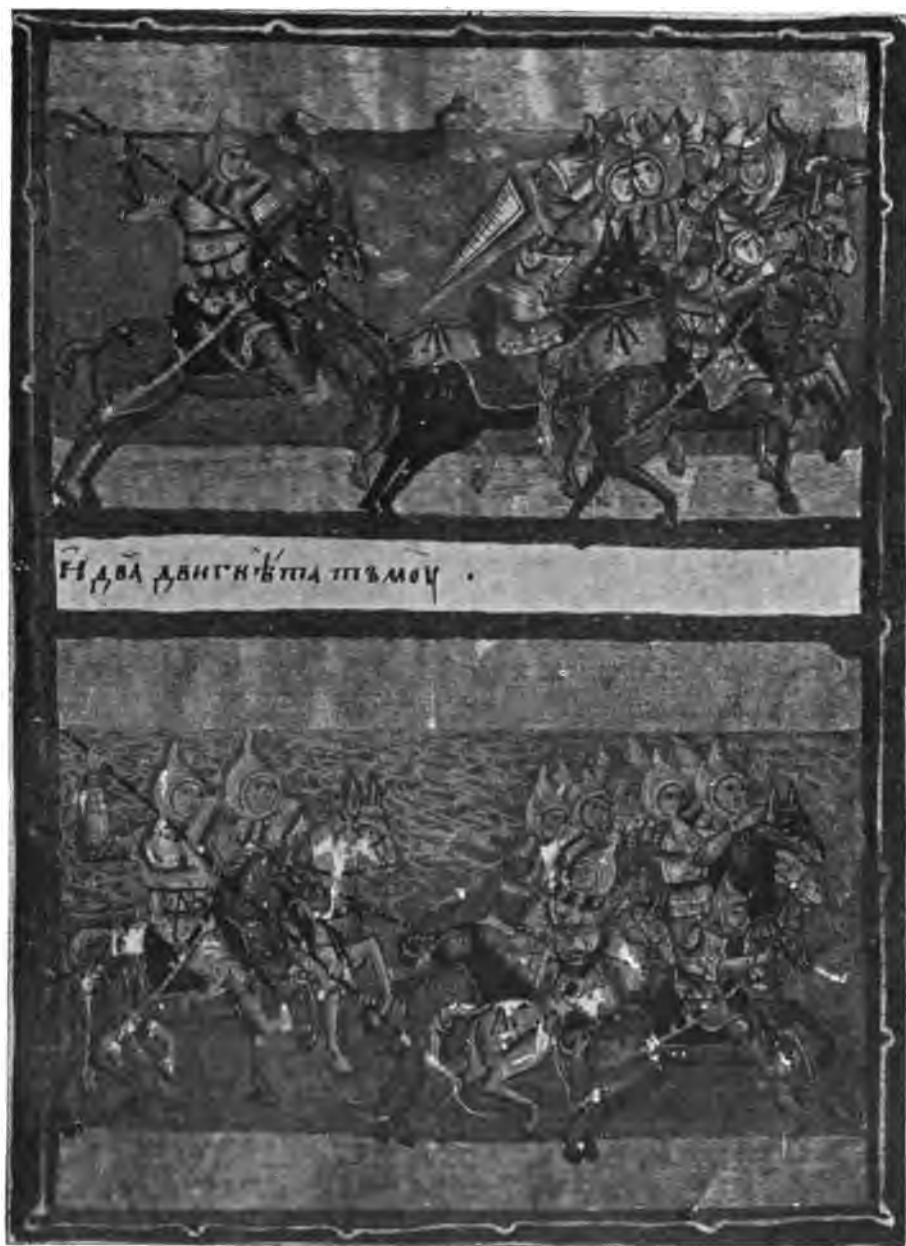 И два двигнѣта тъмоу ·